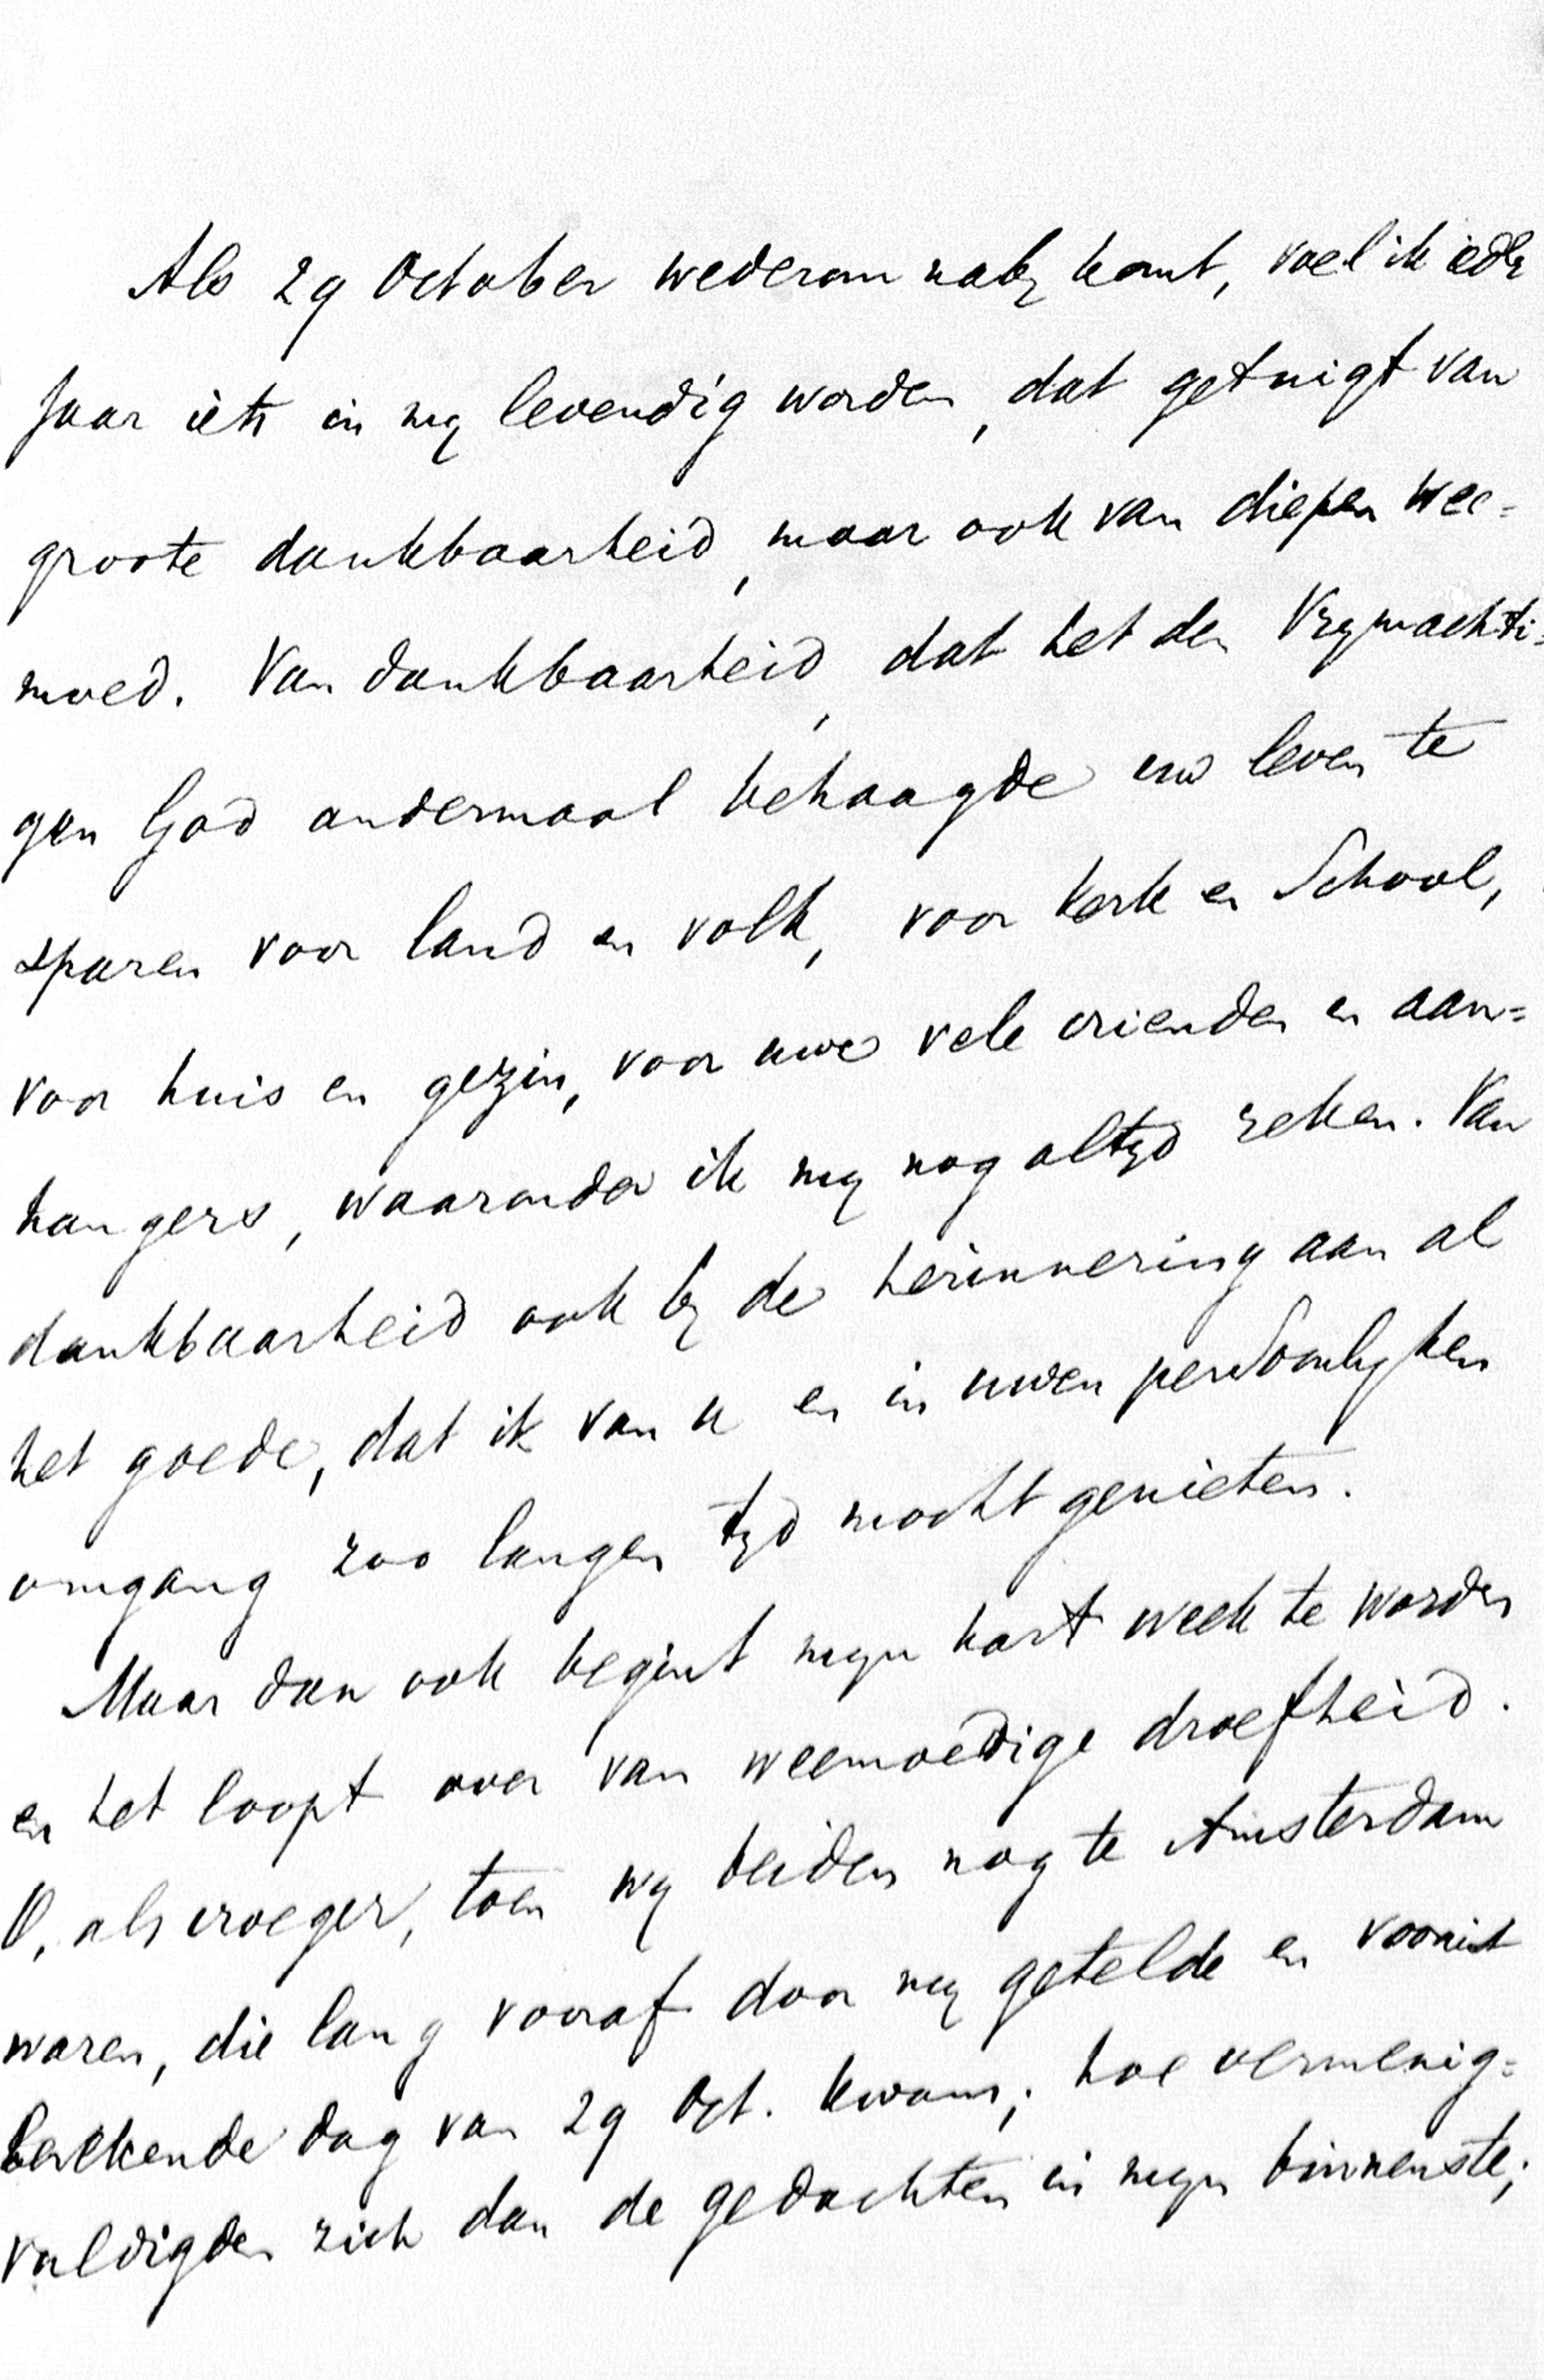 Als 29 October wederom naby komt, voel ik ieder
jaar iets in my levendig worden, dat getuigt van
groote dankbaarheid, maar ook van diepen wee=
moed. Van dankbaarheid, dat het den Vrymachti=
gen God andermaal behaagde uw leven te
sparen voor land en volk, voor kerk en School,
voor huis en gezin, voor uwe vele vrienden en aan=
hangers, waaronder ik my nog altyd reken. Van
dankbaarheid ook by de herinnering aan al
het goede, dat ik van u en in uwen persoonlyken
omgang zoo langen tyd mocht genieten.
Maar dan ook begint myn hart week te worden
en het loopt over van weemoedige droefheid.
O, als vroeger, toen wy beiden nog te Amsterdam
waren, die lang vooraf door my getelde en vooruit
berekende dag van 29 Oct. kwam; hoe vermenig=
vuldigden zich dan de gedachten in myn binnenste;